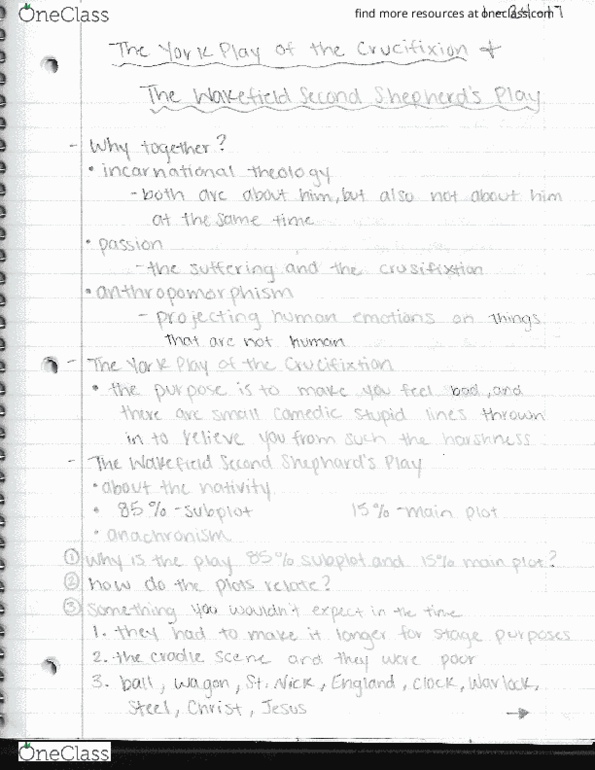 OneClass
find more resources at oneclass.com
The York Play of the Crucifixion +
The Wakefield Second Shepherd's Play
- Why together?
• incarnational theology
- both are about him, but also not about him
at the same time
• passion
- the suffering and the crusifixtion
• anthropomorphism
- projecting human emotions on things
that are not human
- The York Play of the Crucifixtion
• the purpose is to make you feel bad, and
there are small comedic stupid lines thrown
in to relieve you from such the harshness
- The Wakefield Second Shephard's Play
• about the nativity
• 85% - subplot 15% - main plot
• anachronism
① Why is the play 85% subplot and 15% main plot?
② how do the plots relate?
③ Something you wouldn't expect in the time
1. they had to make it longer for stage purposes
2. the cradle scene and they were poor
3. ball, wagon, St. Nick, England, Clock, Warlock,
Steel, Christ, Jesus
→
OneClass